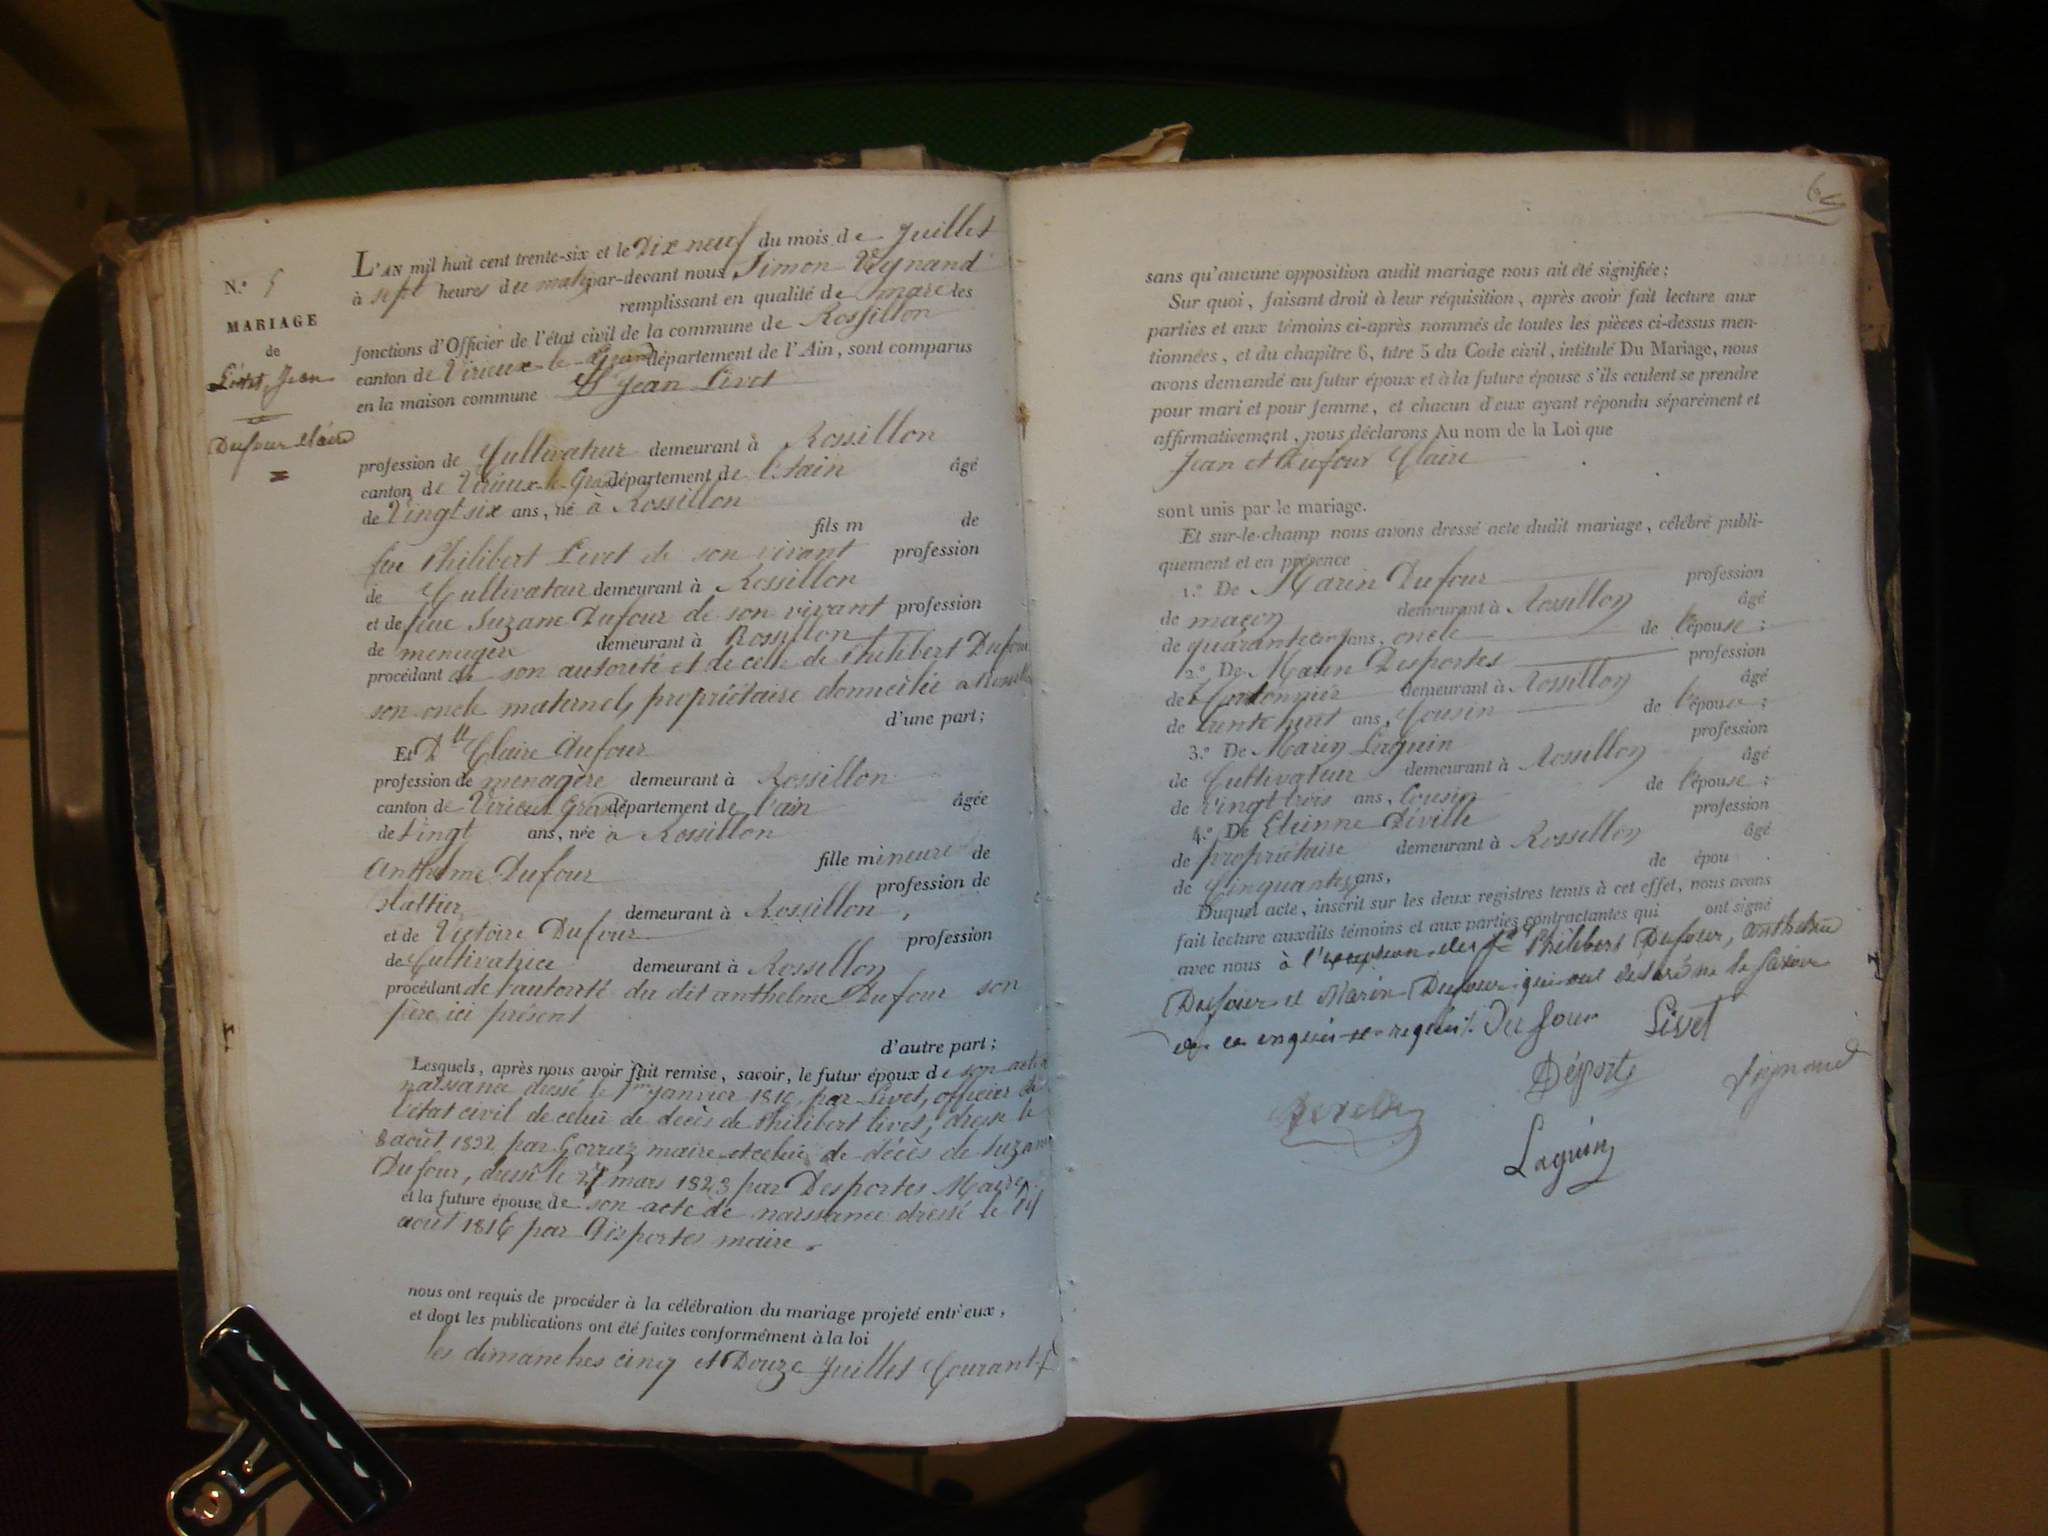 N.° 5
MARIAGE
de
Livet, Jean
Dufour Claire
L'AN mil huit cent trente-six et le Dix neuf du mois de Juillet
à sept heures du matin par-devant nous Simon
remplissant en qualité de maire les
fonctions d'Officier de l'état civil de la commune de Rossillon
canton de Virieux-le-Grand département de l'Ain, sont comparus
en la maison commune Sr Jean Livet
profession de Cultivateur demeurant à Rossillon
canton de Virieux-le-Grand département de l'ain âgé
de Vingt six ans, né à Rossillon
fils m de
feu Philibert Livet de son vivant profession
de Cultivateur demeurant à Rossillon
et de feue Suzane Dufour de son vivant profession
de menagère demeurant à Rossillon
procédant de son autorité et de celle de Philibert Dufour
son oncle maternel, propriétaire domicilié a Rossillon
d'une part;
Et Dlle Claire Dufour
profession de menagère demeurant à Rossillon
canton de Virieux Grand département de l'ain âgée
de vingt ans, née à Rossillon
fille mineure de
Anthelme Dufour profession de
demeurant à Rossillon,
et de Victoire Dufour profession
de Cultivatrice demeurant à Rossillon
procédant de l'autorité du dit anthelme Dufour son
père ici présent
d'autre part;
Lesquels, après nous avoir fait remise, savoir, le futur époux de son acte de
naissance dressé le 1er janvier 1810, par Livet, officier de
l'état civil de celui de décès de Philibert livet, dressé le
8 août 1832 par Gorraz maire et celui de décès de Suzane
Dufour, dressé le 27 mars 1823 par Desportes Maire,
et la future épouse de son acte de naissance dressé le
août 1816 par Desportes maire.
nous ont requis de procéder à la célébration du mariage projeté entr'eux,
et dont les publications ont été faites conformément à la loi
les dimanches cinq et Douze Juillet Courant
sans qu'aucune opposition audit mariage nous ait été signifiée;
Sur quoi, faisant droit à leur réquisition, après avoir fait lecture aux
parties et aux témoins ci-après nommés de toutes les pièces ci-dessus men-
tionnées, et du chapitre 6, titre 5 du Code civil, intitulé Du Mariage, nous
avons demandé au futur époux et à la future épouse s'ils veulent se prendre
pour mari et pour femme, et chacun d'eux ayant répondu séparément et
affirmativement, nous déclarons Au nom de la Loi que
Jean et Dufour Claire
sont unis par le mariage.
Et sur-le-champ nous avons dressé acte dudit mariage, célébré publi-
quement et en présence
1.° De Marin Dufour profession
de maçon demeurant à Rossillon âgé
de quarante cinq ans, oncle de l'épouse;
2.° De Marin Desportes profession
de Cantonnier demeurant à Rossillon âgé
de ans, Cousin de l'épouse;
3.° De Marin Laguin profession
de Cultivateur demeurant à Rossillon âgé
de vingt trois ans, Cousin de l'épouse;
4.° De Etienne Déville profession
de propriétaire demeurant à Rossillon âgé
de Cinquante ans, de épou .
Duquel acte, inscrit sur les deux registres tenus à cet effet, nous avons
fait lecture auxdits témoins et aux parties contractantes qui ont signé
avec nous à l'exception des Philibert Dufour, anthelme
Dufour et Marin Dufour qui ont déclaré ne le savoir
de ce enquis et requis. Dufour Livet
Déporte
Laguin